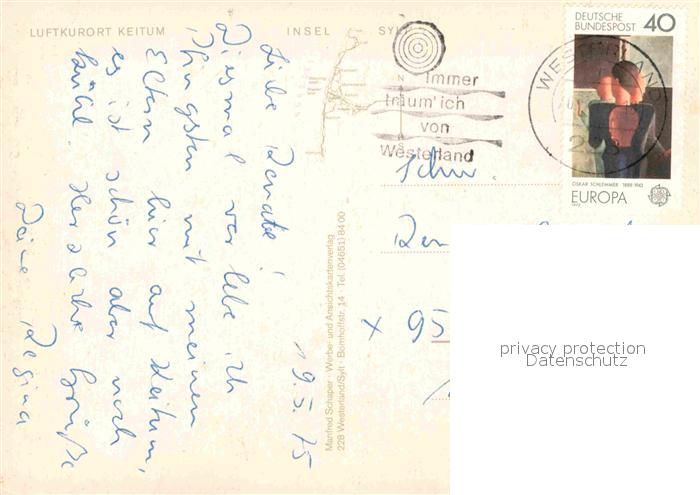 LUFTKURORT KEITUM INSEL SYLT
DEUTSCHE BUNDESPOST 40
OSKAR SCHLEMMER 1888-1943
EUROPA
WESTERLAND
Immer
träum' ich
von
Westerland
19.5.75
Liebe Renate!
Diesmal verlebe ich
Pfingsten mit meinen
Eltern hier auf Keitum,
es ist schön aber noch
kühl. Herzliche Grüße
Deine Regina
Manfred Schaper · Werbe- und Ansichtskartenverlag
228 Westerland/Sylt · Bomhoffstr. 14 · Tel. (04651) 84 00
Ren
x 95
privacy protection
Datenschutz